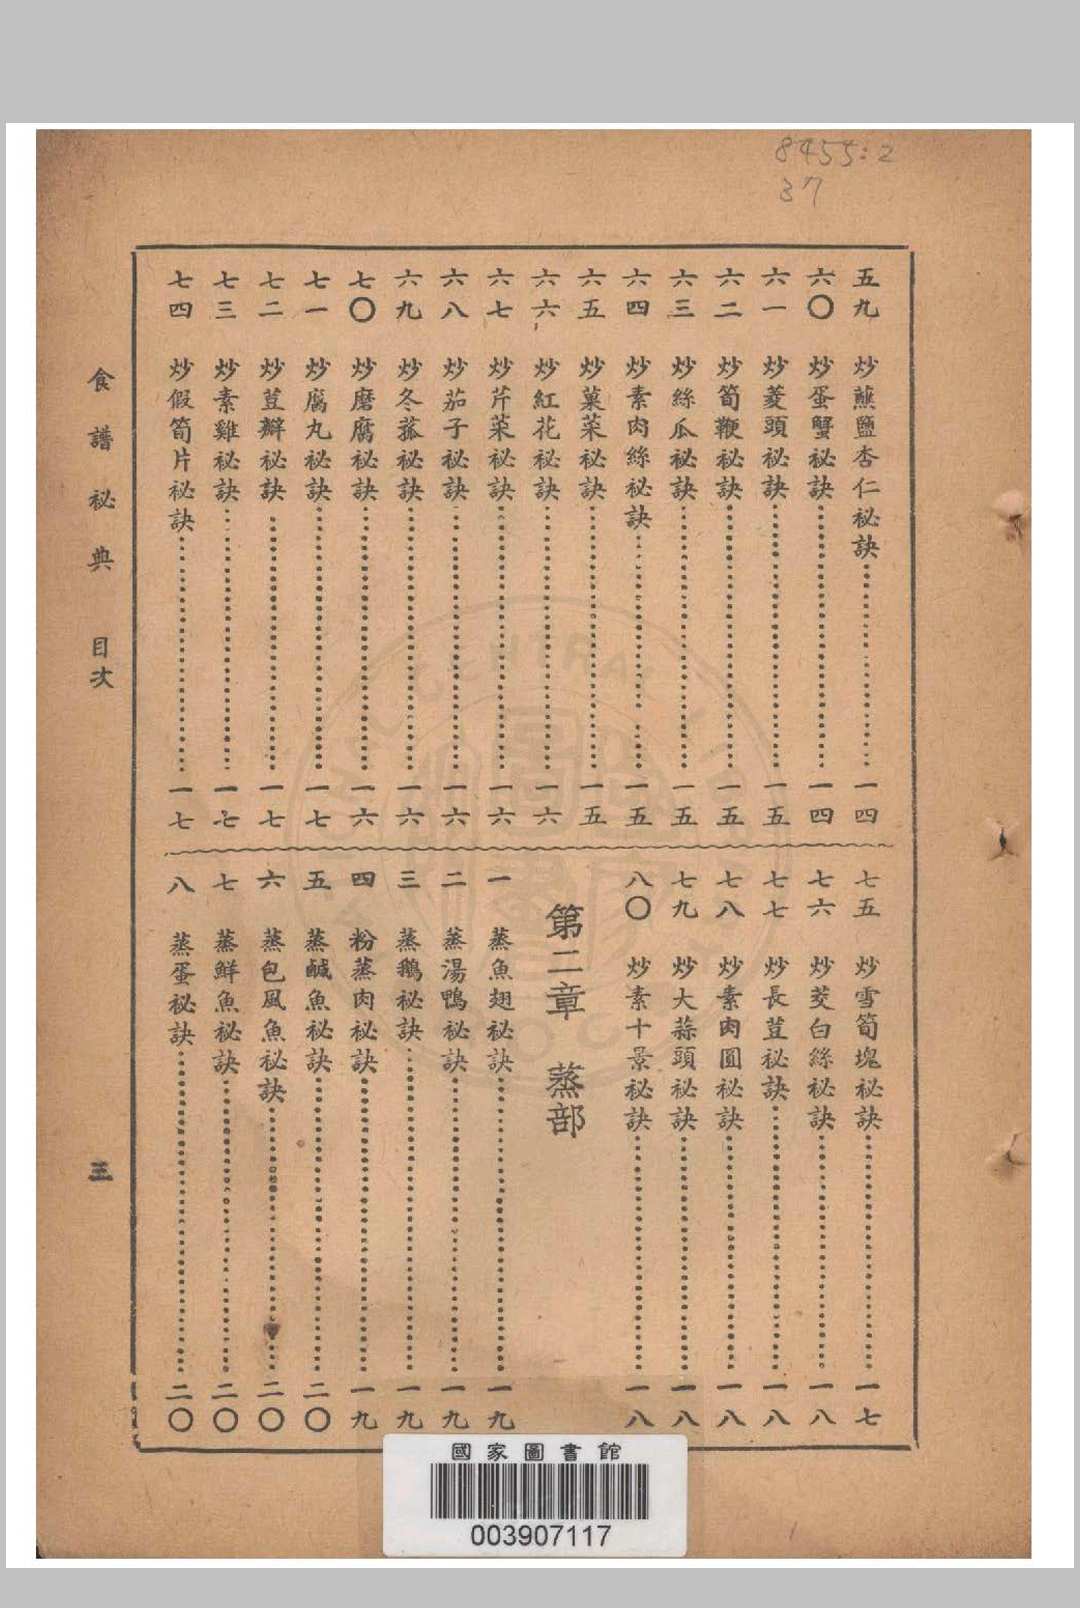 8455:2
37
五九 炒蘸鹽杏仁祕訣 一四
六〇 炒蛋蟹祕訣 一四
六一 炒菱頭祕訣 一五
六二 炒筍鞭祕訣 一五
六三 炒絲瓜祕訣 一五
六四 炒素肉絲祕訣 一五
六五 炒菓菜祕訣 一五
六六 炒紅花祕訣 一六
六七 炒芹菜祕訣 一六
六八 炒茄子祕訣 一六
六九 炒冬菰祕訣 一六
七〇 炒磨腐祕訣 一六
七一 炒腐丸祕訣 一七
七二 炒荳瓣祕訣 一七
七三 炒素雞祕訣 一七
七四 炒假筍片祕訣 一七
七五 炒雪筍塊祕訣 一七
七六 炒茭白絲祕訣 一八
七七 炒長荳祕訣 一八
七八 炒素肉圓祕訣 一八
七九 炒大蒜頭祕訣 一八
八〇 炒素十景祕訣 一八
第二章 蒸部
一 蒸魚翅祕訣 一九
二 蒸湯鴨祕訣 一九
三 蒸鵝祕訣 一九
四 粉蒸肉祕訣 一九
五 蒸鹹魚祕訣 二〇
六 蒸包風魚祕訣 二〇
七 蒸鮮魚祕訣 二〇
八 蒸蛋祕訣 二〇
食譜祕典 目次
三
國家圖書館
003907117